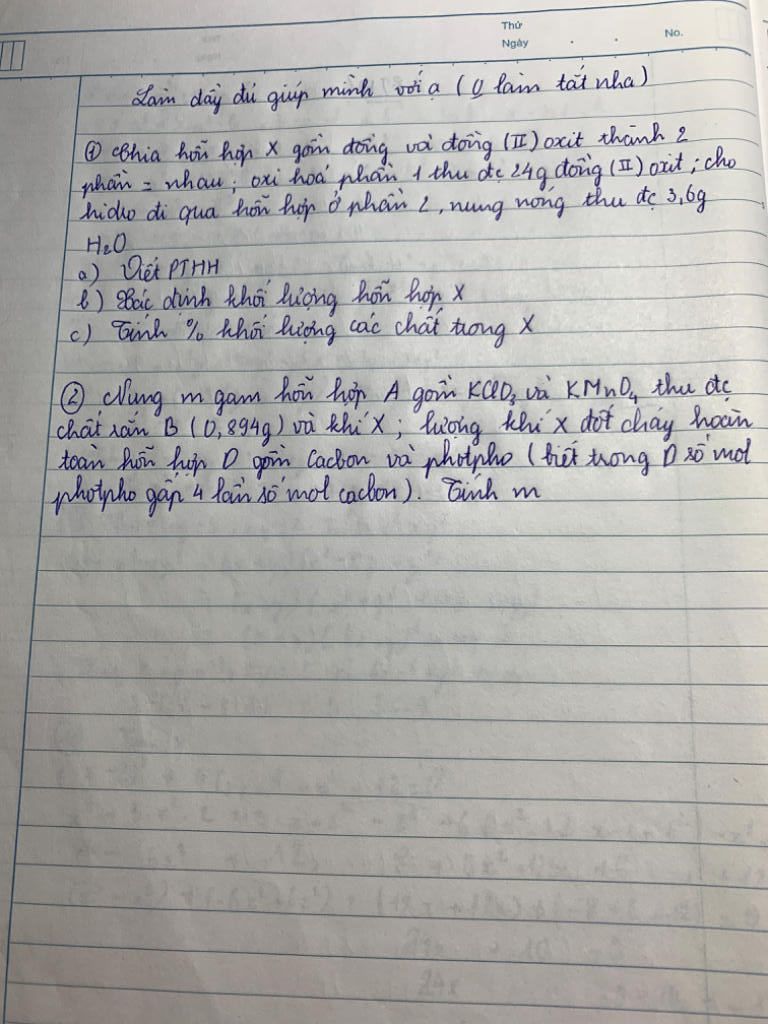 Thứ
Ngày . . No.
Làm đầy đủ giúp mình với ạ (ko làm tắt nha)
① Chia hỗn hợp X gồm đồng và đồng (II) oxit thành 2
phần = nhau; oxi hoá phần 1 thu đc 24g đồng (II) oxit; cho
hidro đi qua hỗn hợp ở phần 2, nung nóng thu đc 3,6g
H₂O
a) Viết PTHH
b) Xác định khối lượng hỗn hợp X
c) Tính % khối lượng các chất trong X
② Nung m gam hỗn hợp A gồm KClO₃ và KMnO₄ thu đc
chất rắn B (0,894g) và khí X; lượng khí X đốt cháy hoàn
toàn hỗn hợp D gồm Cacbon và photpho (biết trong D số mol
photpho gấp 4 lần số mol cacbon). Tính m